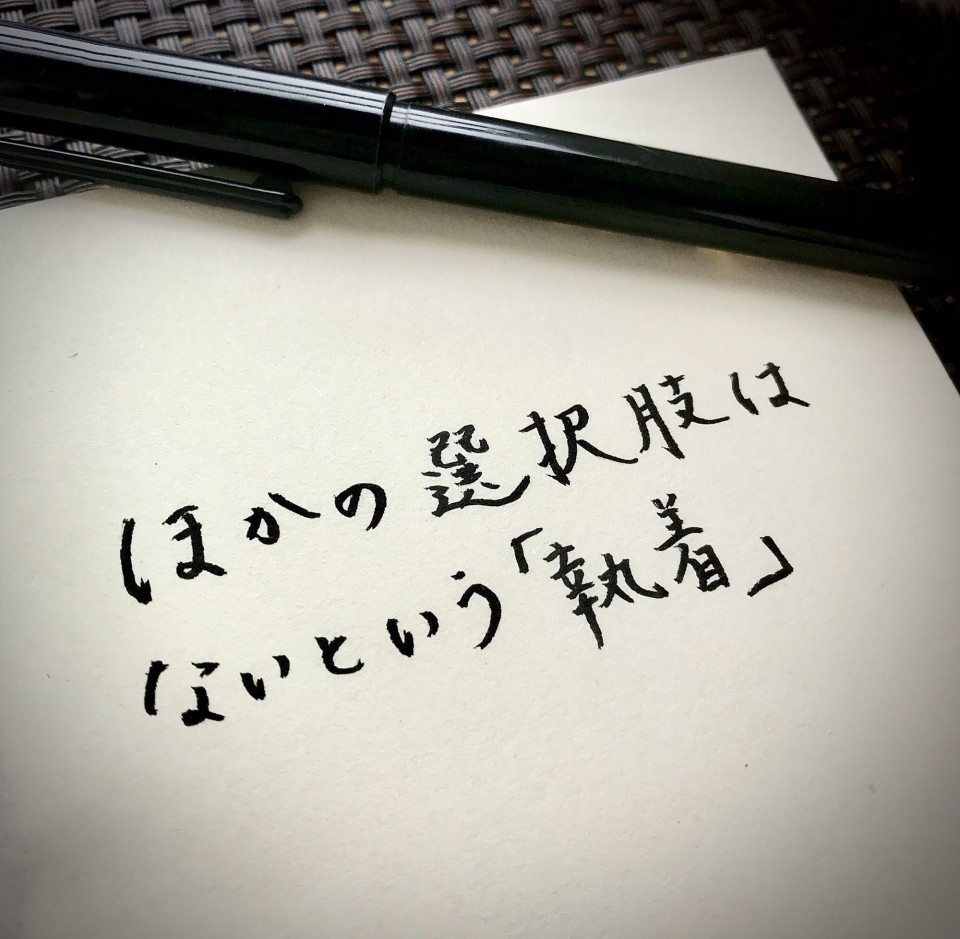 ほかの選択肢は
ないという「執着」